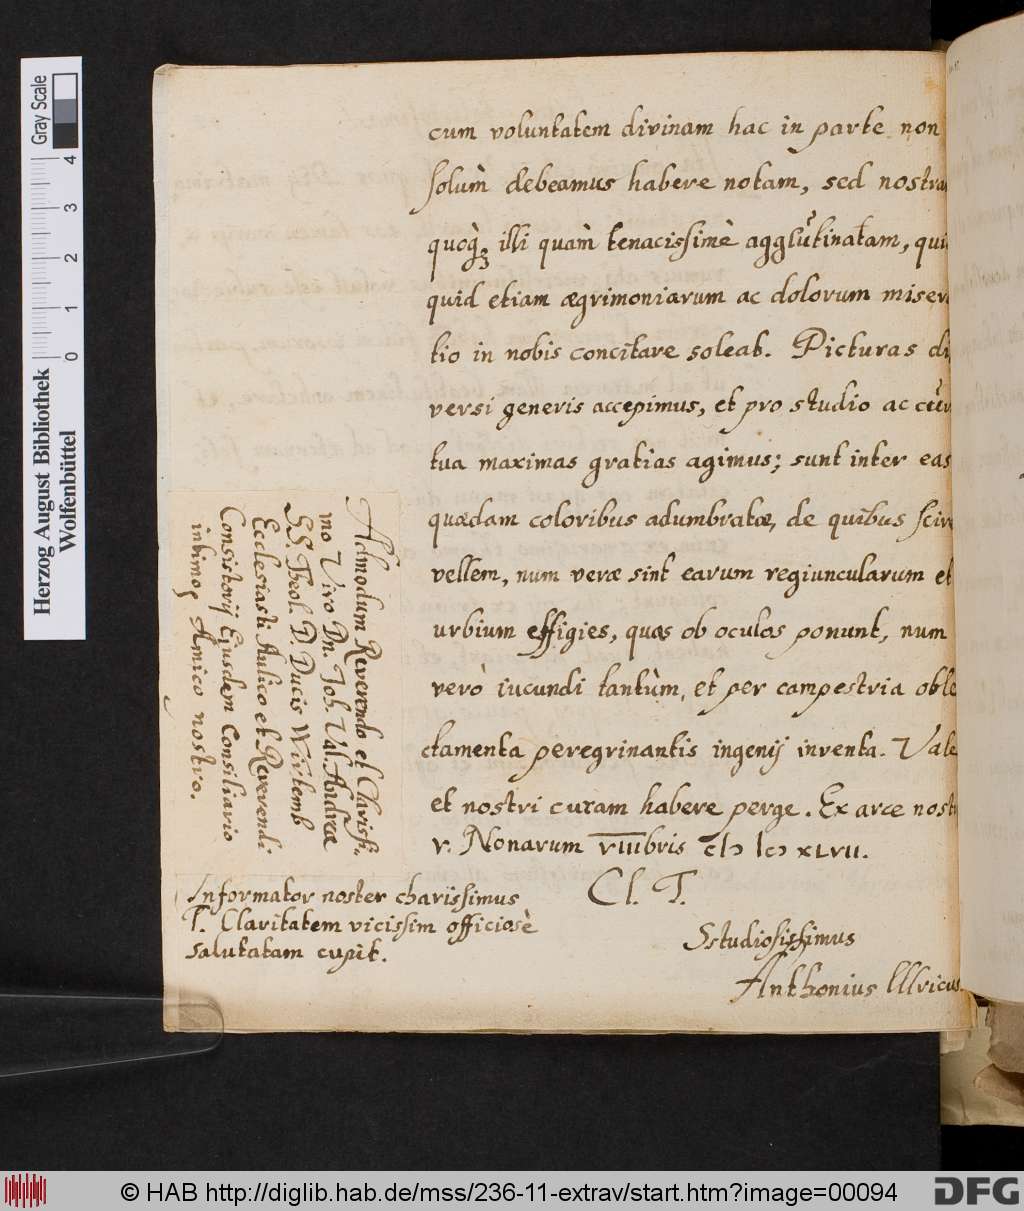 cum voluntatem divinam hac in parte non
solùm debeamus habere notam, sed nostra
quoq illi quàm tenacissimè agglutinatam,
quid etiam ægrimoniarum ac dolorum miser
tio in nobis concitare soleat. Picturas di
versi generis accepimus, et pro studio ac cur
tua maximas gratias agimus; sunt inter eas
quædam coloribus adumbratæ, de quibus scir
vellem, num veræ sint earum regiuncularum et
urbium effigies, quas ob oculos ponunt, num
verò iucundi tantùm, et per campestria oble
ctamenta peregrinantis ingenij inventa. Vale
et nostri curam habere perge. Ex arce nost
v. Nonarum VIIIbris CIƆ IƆC XLVII.
Cl. T.
Studiosissimus
Anthonius Ulricus
Admodum Reverendo et Clarissi
mo Viro Dn. Joh. Val. Andreæ
SS. Theol. D. Ducis Wirtemb
Ecclesiast. Aulico et Reverendi
Consistorij Ejusdem Consiliario
intimo, Amico nostro.
Informator noster charissimus
T. Claritatem vicissim officiosè
salutatam cupit.
Herzog August Bibliothek
Wolfenbüttel
Gray Scale
0 1 2 3 4
© HAB http://diglib.hab.de/mss/236-11-extrav/start.htm?image=00094
DFG